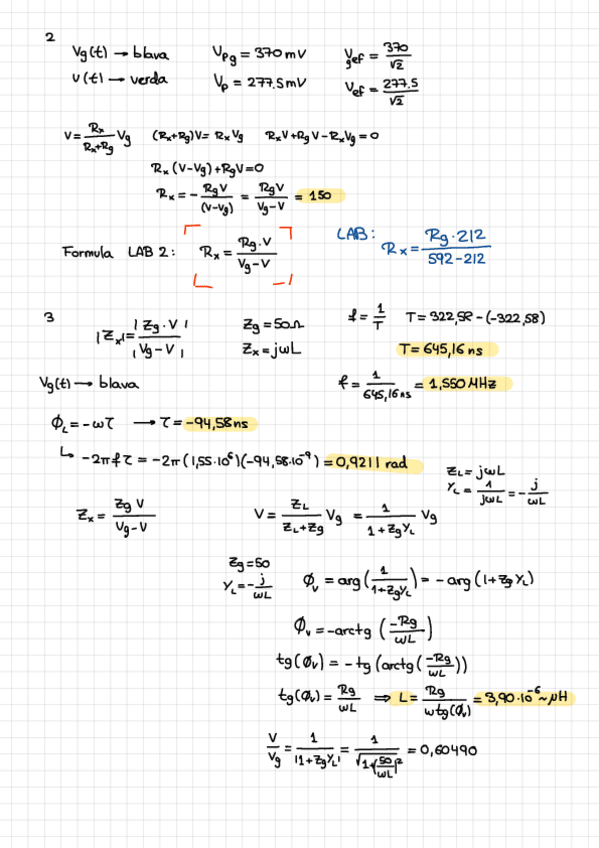 2
Vg(t) → blava Vpg = 370 mV Vgef = 370/√2
v(t) → verda Vp = 277.5 mV Vef = 277.5/√2
V = Rx/(Rx+Rg) Vg (Rx+Rg)V = RxVg RxV + RgV - RxVg = 0
Rx(V-Vg) + RgV = 0
Rx = - RgV/(V-Vg) = RgV/(Vg-V) = 150
Formula LAB 2: Rx = Rg·V/(Vg-V) LAB: Rx = Rg·212/(592-212)
3
|Zx| = |Zg·V|/|Vg-V| Zg = 50Ω f = 1/T T = 322,58 - (-322,58)
Zx = jωL T = 645,16 ns
Vg(t) → blava f = 1/645,16 ns = 1,550 MHz
ϕL = -ωτ → τ = -94,58 ns
↳ -2πfτ = -2π(1,55·10⁶)(-94,58·10⁻⁹) = 0,9211 rad
ZL = jωL
YL = 1/jωL = - j/ωL
Zx = Zg V/(Vg-V) V = ZL/(ZL+Zg) Vg = 1/(1+ZgYL) Vg
Zg = 50
YL = - j/ωL ϕv = arg(1/(1+ZgYL)) = - arg(1+ZgYL)
ϕv = -arctg(-Rg/ωL)
tg(ϕv) = -tg(arctg(-Rg/ωL))
tg(ϕv) = Rg/ωL ⇒ L = Rg/(ω tg(ϕv)) = 3,90·10⁻⁶ ~ μH
V/Vg = 1/|1+ZgYL| = 1/√(1+(50/ωL)²) = 0,60490